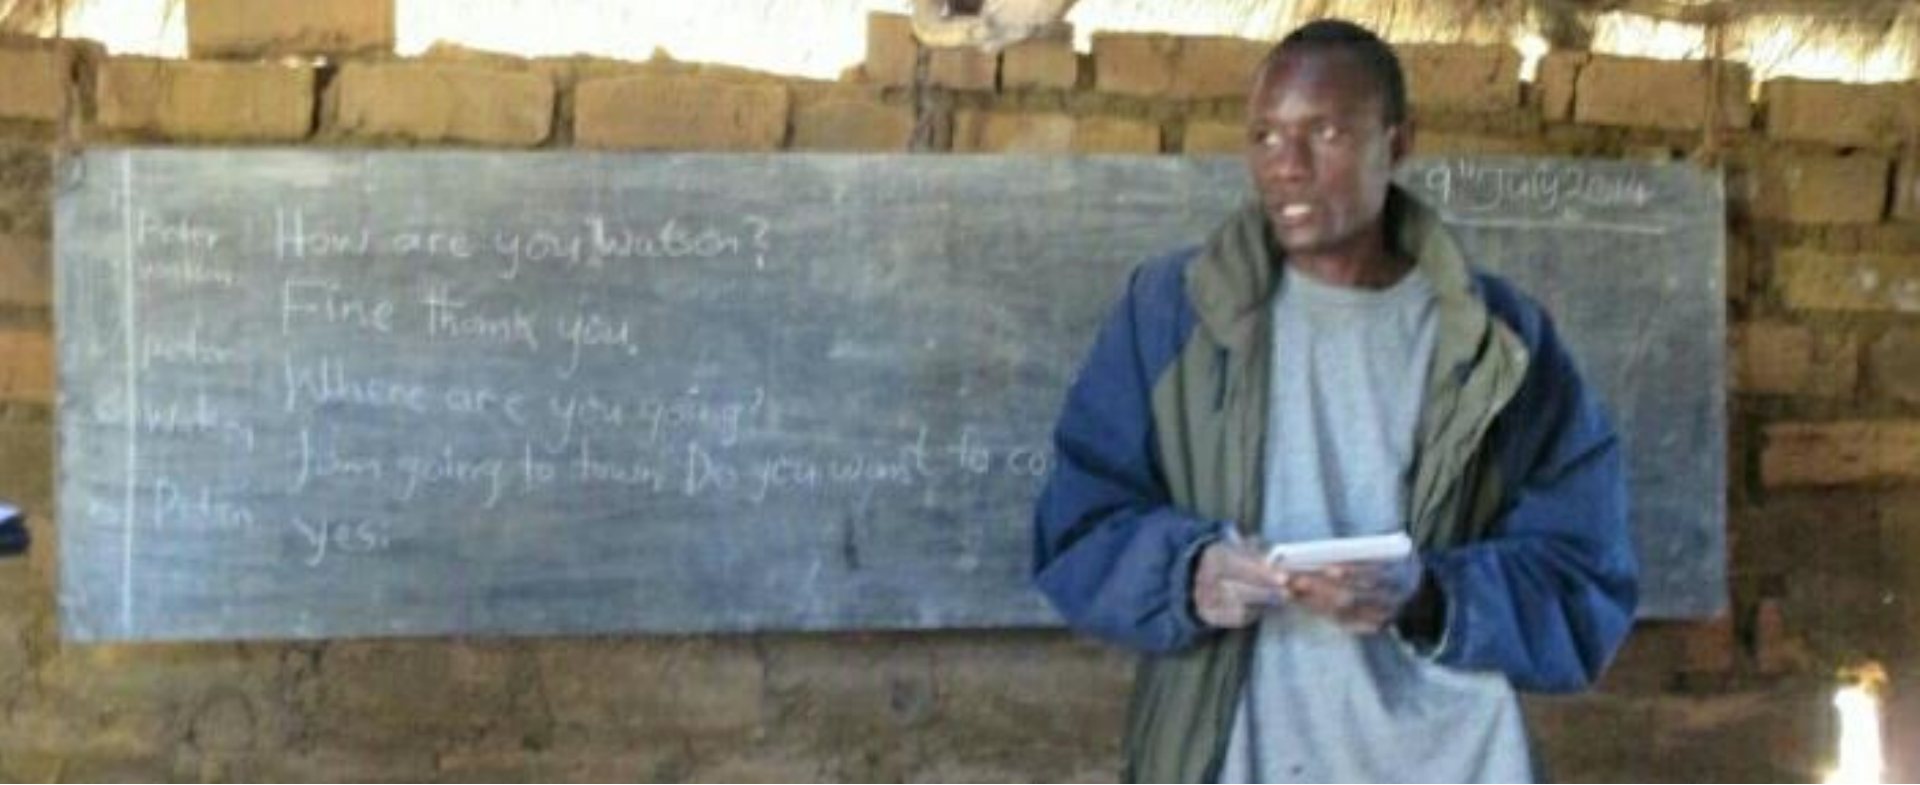 9th July 2014
Peter How are you, Watson?
Watson Fine thank you.
peter Where are you going?
Watson I am going to town, Do you want to co
Peter Yes.